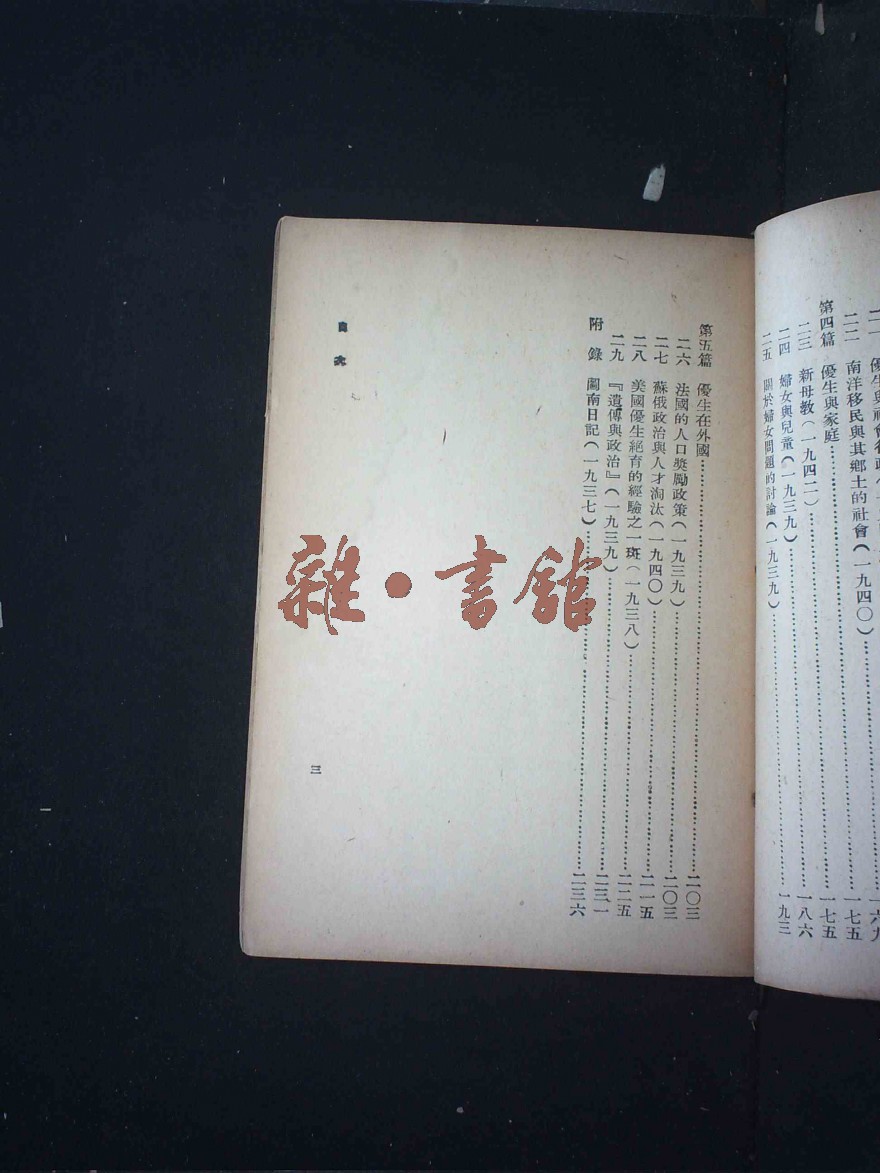 優生與社會行政(一
二二 南洋移民與其鄉土的社會(一九四〇)……一六九
第四篇 優生與家庭……一七五
二三 新母教(一九四二)……一七五
二四 婦女與兒童(一九三九)……一八六
二五 關於婦女問題的討論(一九三九)……一九三
第五篇 優生在外國……二〇三
二六 法國的人口獎勵政策(一九三九)……二〇三
二七 蘇俄政治與人才淘汰(一九四〇)……二一五
二八 美國優生絕育的經驗之一斑(一九三八)……二二五
二九 『遺傳與政治』(一九三九)……二三一
附錄 圖南日記(一九三七)……二三六
目次
三
雜·書館